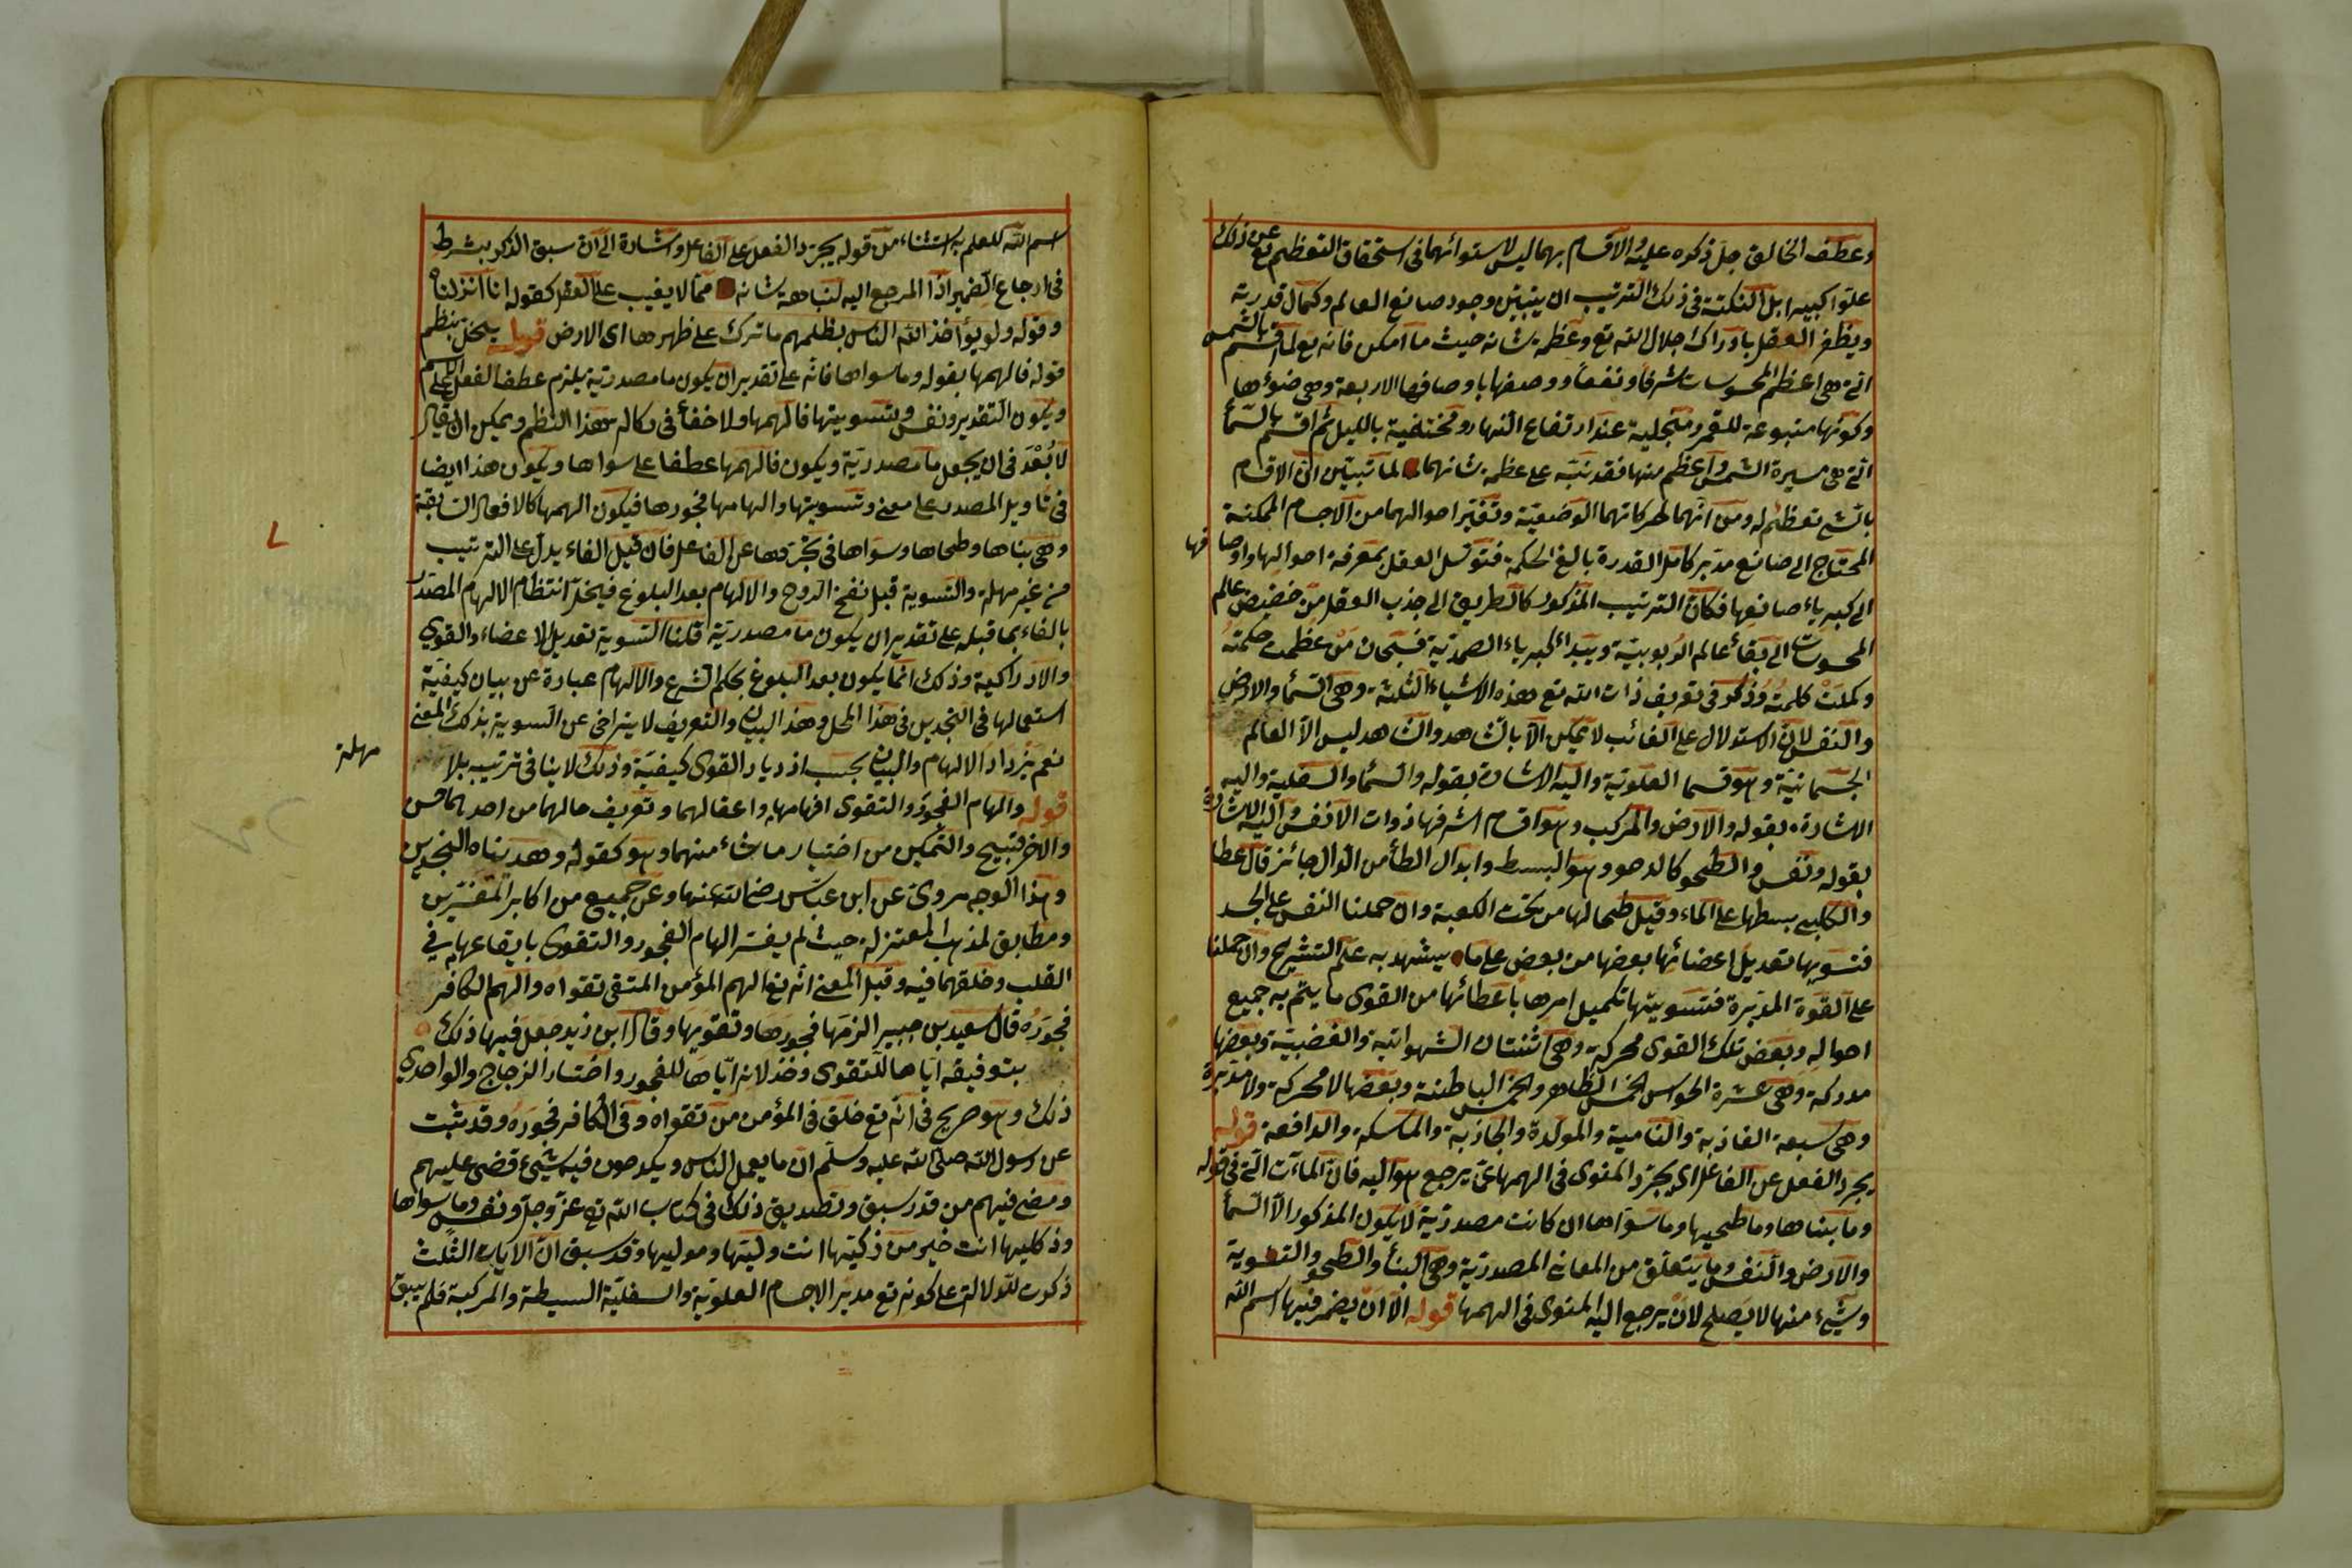 وعطف الخالق جل ذكره عليه والاقسام بهما ليس لاستوائهما فى استحقاق التعظيم تع عن ذلك
علوا كبيرا بل النكتة فى ذلك الترتيب ان يتبين وجود صانع العالم وكمال قدرته
ويظفر العقل بادراك جلال الله تع وعظمة شانه حيث ما امكن فانه تع لما اقسم بالشمس
التى هى اعظم المحسوسات شرفا ونفعا ووصفها باوصافها الاربعة وهى ضوئها
وكونها متبوعة للقمر ومتجلية عند ارتفاع النهار ومختفية بالليل ثم اقسم بالسماء
التى هى مسيرة الشمس واعظم منها فقد نبه على عظمة شانهما لما تبين ان الاقسام
بالشئ تعظيم له ومن انهما لحركاتهما الوضعية وتغير احوالهما من الاجسام الممكنة
المحتاج الى صانع مدبر كامل القدرة بالغ الحكمة فتوسل العقل بمعرفة احوالها واوصا فها
الى كبرياء صانعها فكان الترتيب المذكور كالطريق الى جذب العقل من حضيض عالم
المحسوسات الى بقاع عالم الربوبية وبيداء كبرياء الصمدية فسبحان من عظمت حكمته
وكملت كلمته وذكر فى تعريف ذات الله تع هذه الاشياء الثلثة وهى السماء والارض
والنفس لان الاستدلال على الغائب لا يمكن الا بالشاهد والشاهد ليس الا العالم
الجسمانية وهو قسما العلوية واليه الاشارة بقوله والسماء والسفلية واليه
الاشارة بقوله والارض والمركب وهو اقسام اشرفها ذوات الانفس واليه الاشارة
بقوله ونفس والطحو كالدحو وهو البسط وابدال الطاء من الدال جائز قال عطا
والكلبى بسطها على الماء وقيل طحا لها من تحت الكعبة وان حملنا النفس على الجسد
فتسويها تعديل اعضائها بعضها من بعض على ما يشهد به علم التشريح وان حملنا
على القوة المدبرة فتسويتها تكميل امرها باعطائها من القوى ما يتم به جميع
احواله وبعض تلك القوى محركة وهى اثنتان الشهوانية والغضبية وبعضها
مدركة وهى عشرة الحواس الخمس الظاهر والخمس الباطنة وبعضها لا محركة ولا مدبرة
وهى سبعة الغاذية والنامية والمولدة والجاذبة والماسكة والدافعة قوله
يجرد الفعل عن الفاعل اى يجرد المنوى فى الهمها عن يرجع هو اليه فان الماآت التى فى قوله
وما بناها وما طحيها وما سواها ان كانت مصدرية لا يكون المذكور الا السماء
والارض والنفس وما يتعلق من المعانى المصدرية وهى البناء والطحو والتسوية
وشئ منها لا يصلح لان يرجع اليه المنوى فى الهمها قوله الا ان يضمر فيها اسم الله
اسم الله للعلم به استثناء من قوله يجرد الفعل على الفاعل واشارة الى ان سبق الذكر بشرط
فى ارجاع الضمير اذا المرجع اليه لنباهة شانه مما لا يغيب على العقل كقوله انا انزلناه
وقوله ولو يؤاخذ الله الناس بظلمهم ما ترك على ظهرها اى الارض قوله يخل بنظم
قوله فالهمها بقوله وما سواها فانه على تقدير ان يكون ما مصدرية يلزم عطف الفعل على الاسم
ويكون التقدير ونفس وتسويتها فالهمها ولا خفاء فى هذا النظم ويمكن ان يقال
لا بعد فى ان يجعل ما مصدرية ويكون فالهمها عطفا على سواها ويكون هذا ايضا
فى تاويل المصدر على معنى وتسويتها والهامها فجورها فيكون الهمها كالافعال السابقة
وهى بناها وطحاها وسواها فى تجردها عن الفاعل فان قيل الفاء يدل على الترتيب
من غير مهلة والتسوية قبل نفخ الروح والالهام بعد البلوغ فيخل انتظام الالهام المصدر
بالفاء بما قبله على تقدير ان يكون ما مصدرية قلنا التسوية تعديل الاعضاء والقوى
والادراكية وذلك انما يكون بعد البلوغ بحكم الشرع والالهام عبارة عن بيان كيفية
استعمالها فى النجدين فى هذا المحل وهذ البيان والتعريف لا يتراخى عن التسوية بذلك المعنى
نعم يزداد الالهام والبيان بحسب ازدياد القوى كيفية وذلك لا ينافى ترتيب بلا مهلة
قوله والهام الفجور والتقوى افهامهما واعقالهما وتعريف حالهما من احدهما حسن
والاخر قبيح والتمكين من اختيار ما شاء منهما وهو كقوله وهديناه النجدين
وهذا الوجه مروى عن ابن عباس رضى الله عنهما وعن جميع من اكابر المفسرين
ومطابق لمذهب المعتزلة حيث لم يفسر الهام الفجور والتقوى بايقاعها فى
القلب وخلقهما فيه وقيل المعنى انه تع الهم المؤمن المتقى تقواه والهم الكافر
فجوره قال سعيد بن جبير الزمها فجورها وتقويها وقال ابن زيد جعل فيها ذلك
بتوفيقه اياها للتقوى وخذلانه اياها للفجور واختار الزجاج والواحدى
ذلك وهو صريح فى انه تع خلق فى المؤمن من تقواه وفى الكافر فجوره وقد ثبت
عن رسول الله صلى الله عليه وسلم ان ما يعمل الناس ويكدحون فيه شيئ قضى عليهم
ومضى فيهم من قدر سبق وتصديق ذلك فى كتاب الله تع عز وجل ونفس وما سواها
وذ كليها انت خير من زكيتها انت وليتها وموليها وقد سبق ان الايات الثلث
ذكرت للدلالة على كونه تع مدبر الاجسام العلوية والسفلية البسيطة والمركبة فلم يبق